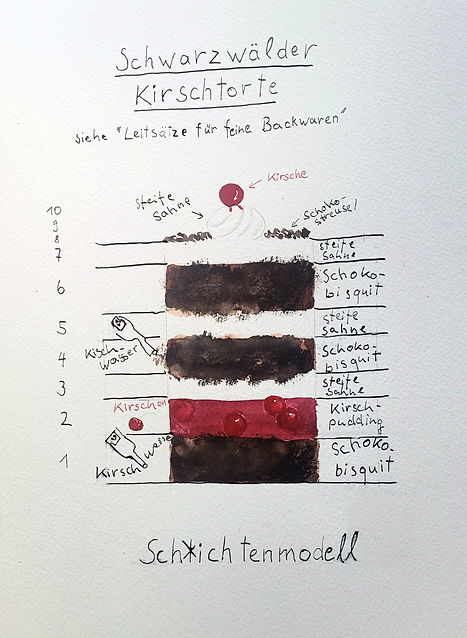 Schwarzwälder
Kirschtorte
siehe "Leitsätze für feine Backwaren"
Kirsche
steife
Sahne
Schoko-
streusel
10
9
8
steife
Sahne
7
6
Schoko-
bisquit
5
steife
Sahne
Kisch-
wasser
4
Schoko-
bisquit
3
steife
Sahne
Kirschen
2
Kirsch-
pudding
1
Kirschwasser
Schoko-
bisquit
Schichtenmodell